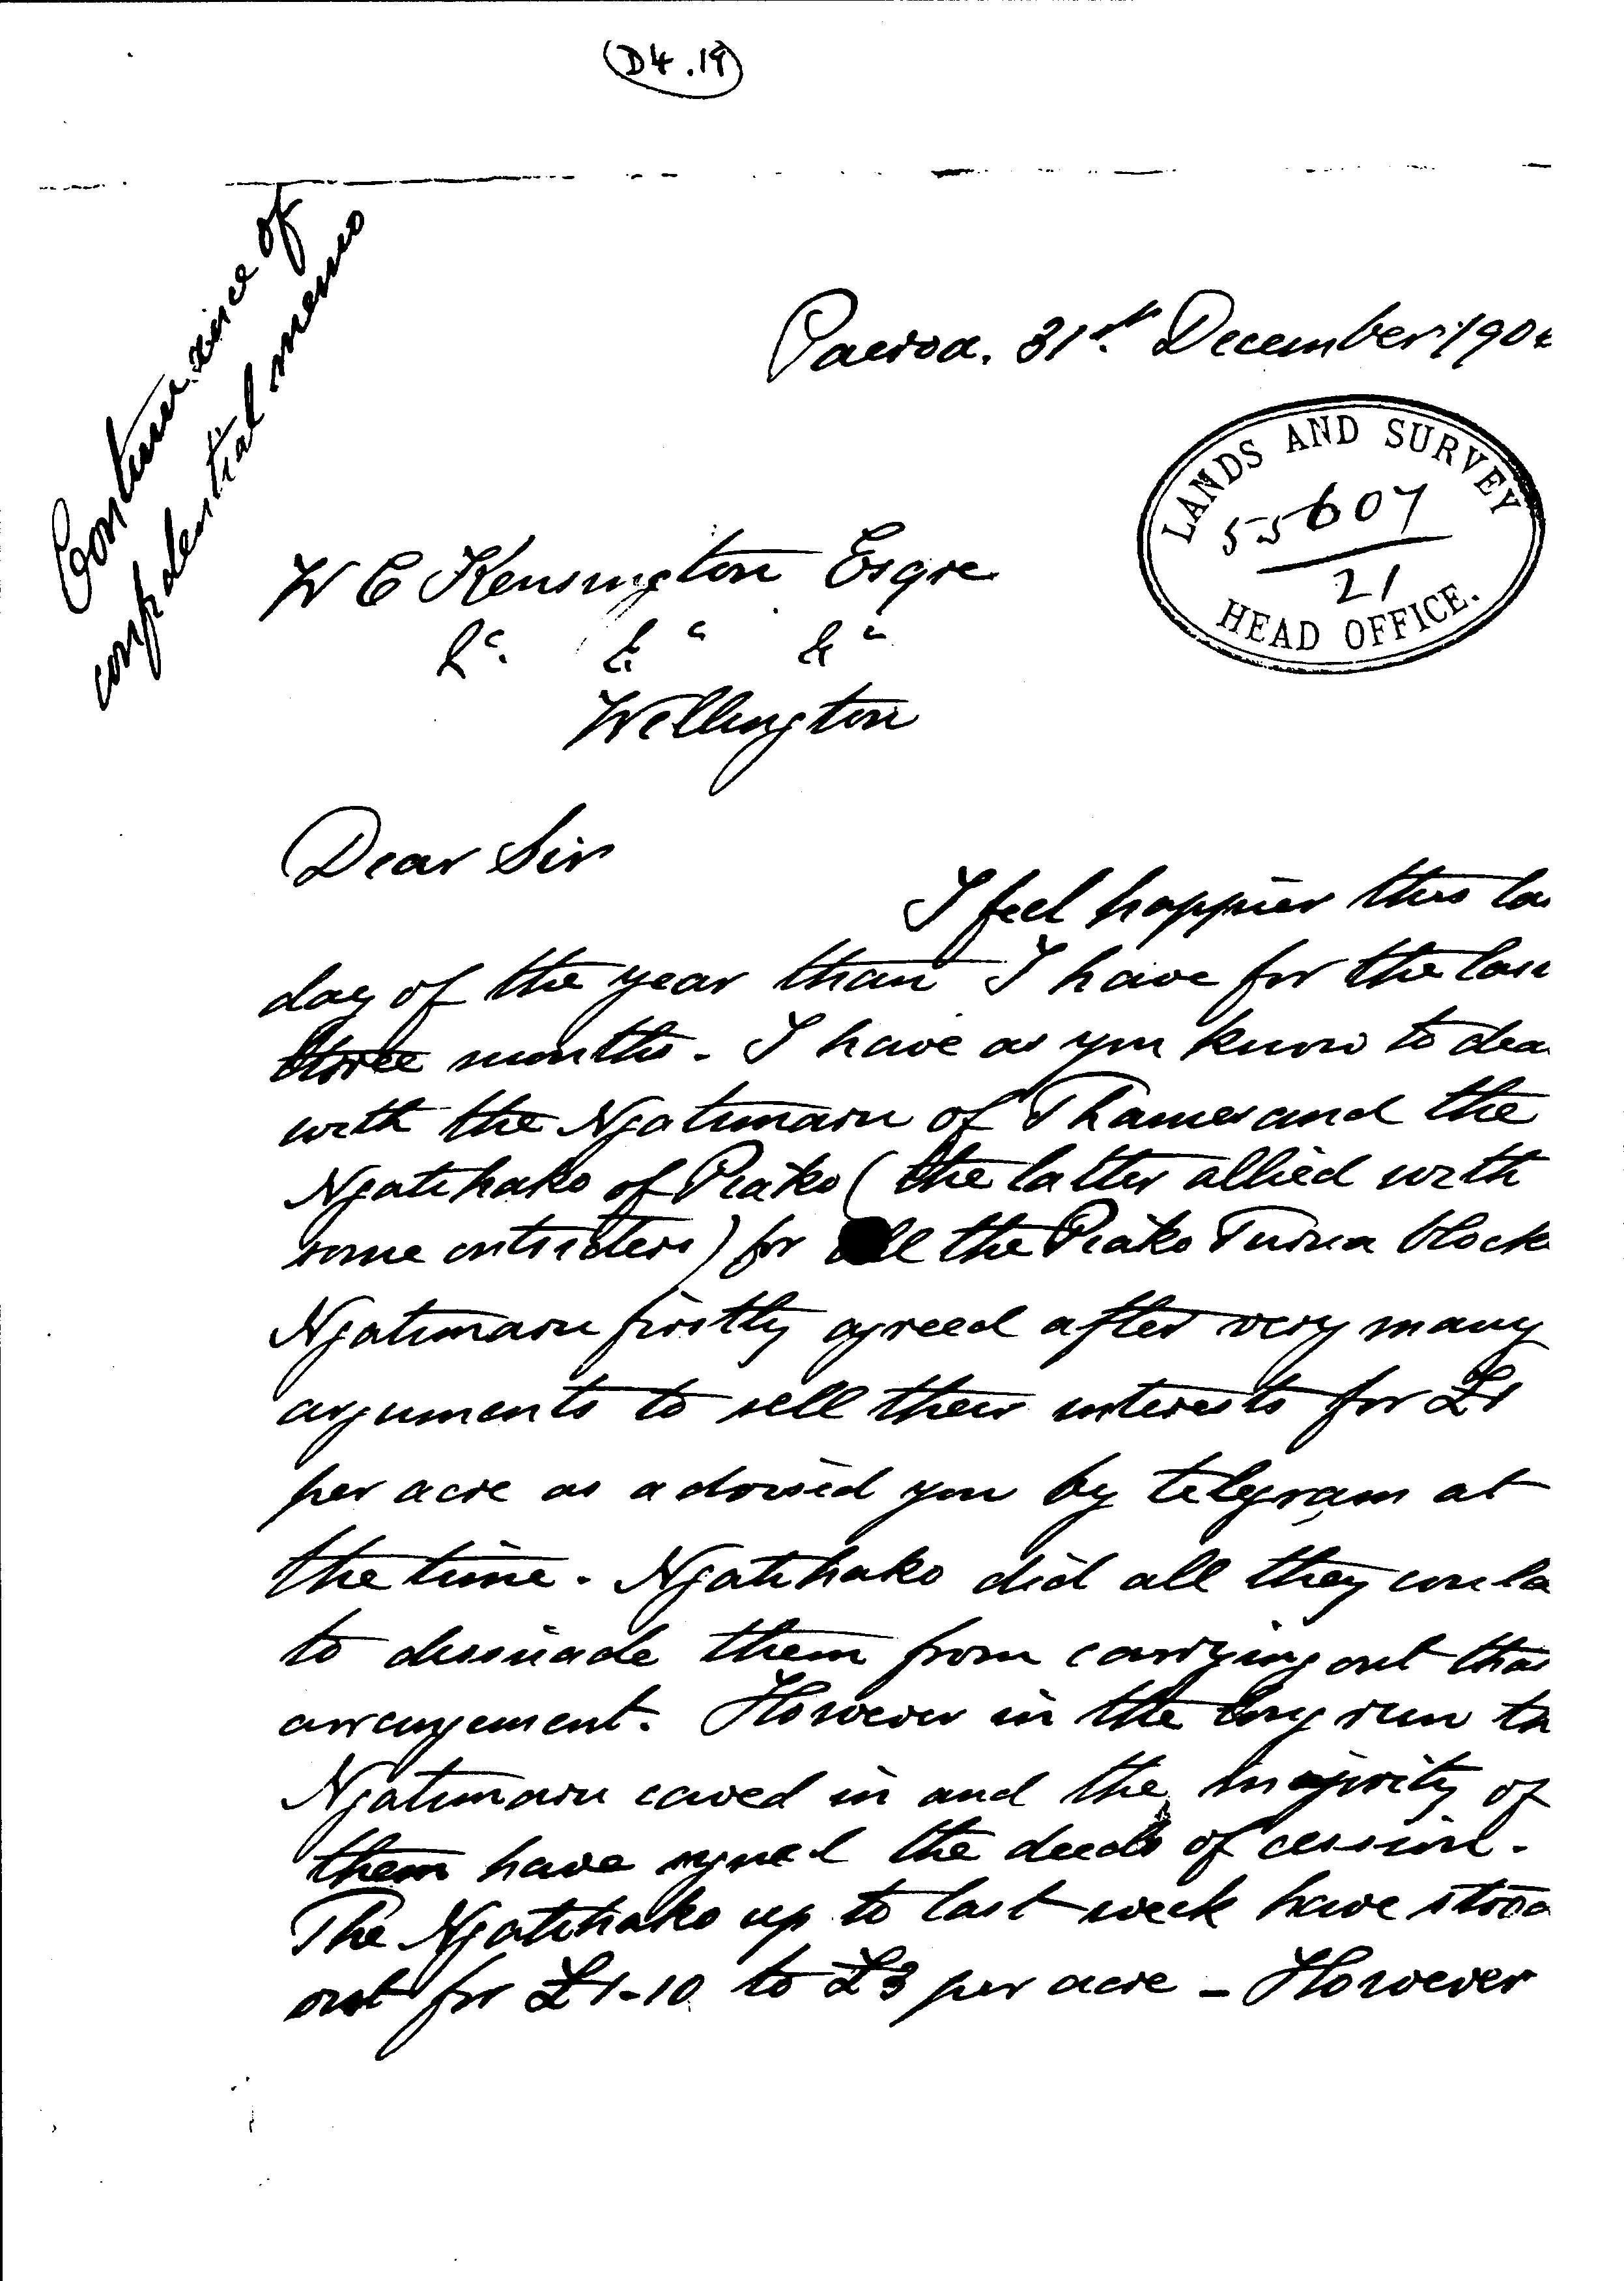 (D4.19)
Continuance of
confidential memo
Paeroa. 31st. December 190
LANDS AND SURVEY
55607
21
HEAD OFFICE.
W C Kensington Esqre
&c. &c &c
Wellington
Dear Sir
I feel happier this la
day of the year than I have for the las
three months. I have as you know to dea
with the Ngatimaru of Thames and the
Ngatihako of Piako (the latter allied with
some outsiders) for all the Piako Turua block
Ngatimaru firstly agreed after very many
arguments to sell their interests for £1
per acre as advised you by telegram at
the time. Ngatihako did all they could
to dissuade them from carrying out that
arrangement. However in the long run th
Ngatimaru caved in and the majority of
them have signed the deeds of cession.
The Ngatihako up to last week have stood
out for £1-10 to £3 per acre - However